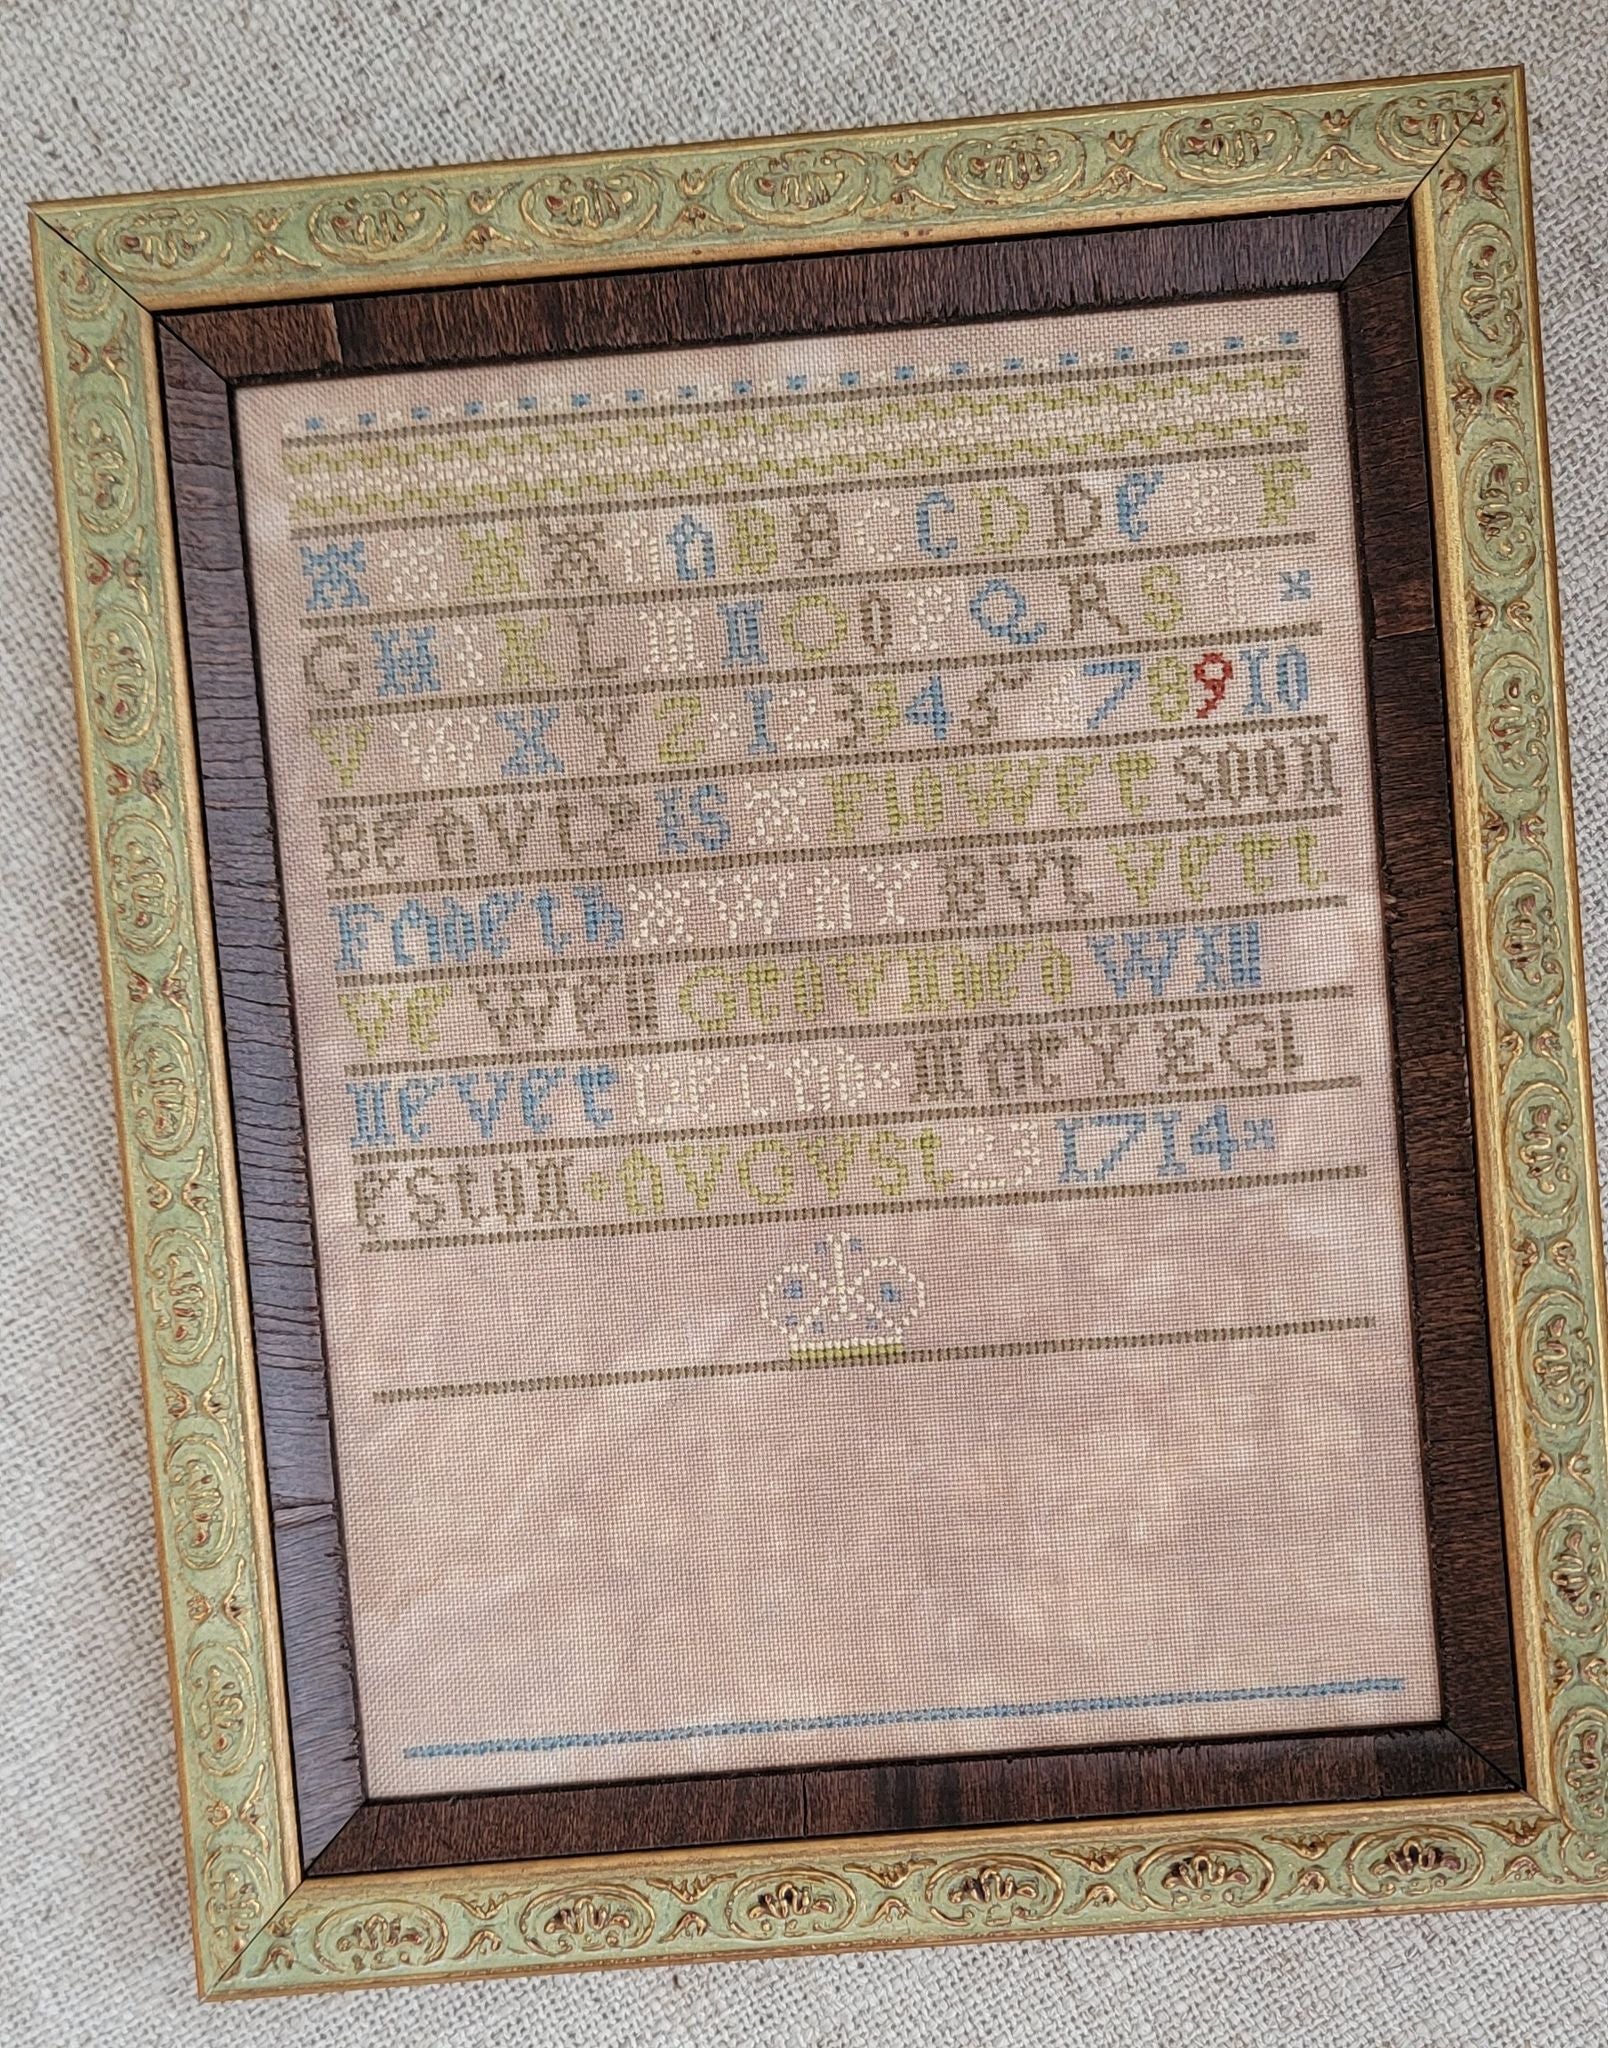 A A A A A A B B C C D D e E F
G H I K L M N O O P Q R S T ×
V W X Y Z × 1 2 3 3 4 5 6 7 8 9 10
IS A Flower SOON
FAdeth AWAY BVt Vert
Ve Well GroVNded WIll
NeVer DeCAd × MArY EGl
eStoN + AVGVSt 23 1714 ×